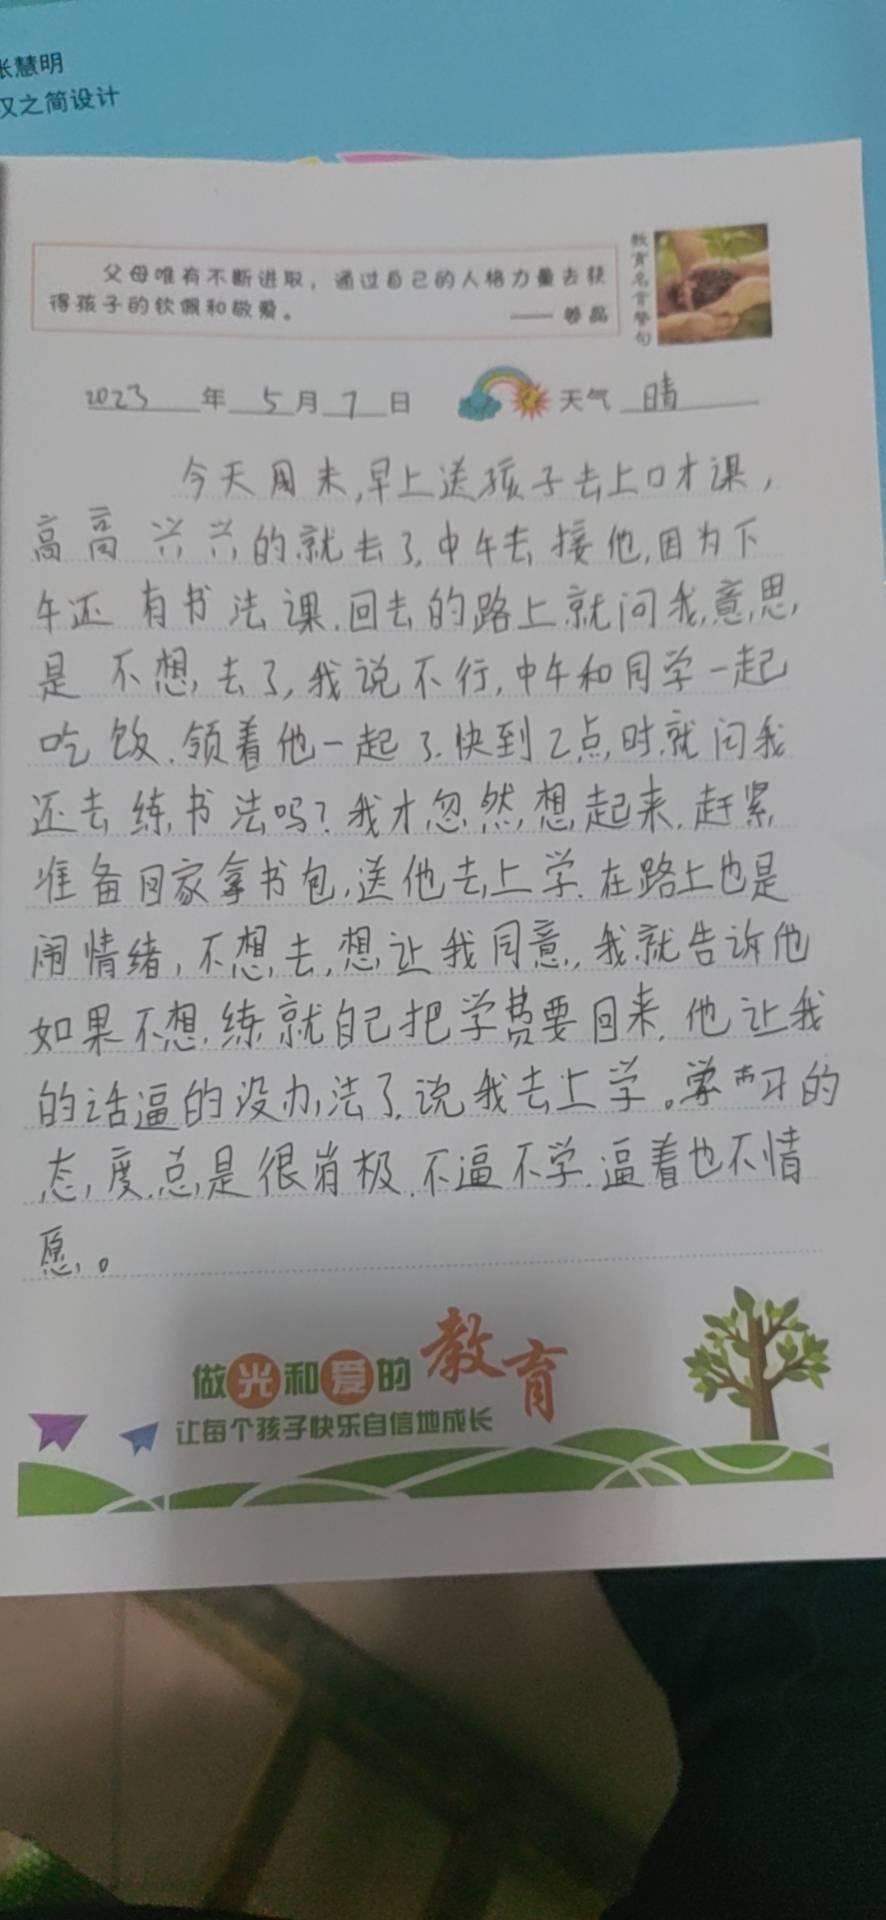 张慧明
汉之简设计
父母唯有不断进取，通过自己的人格力量去获
得孩子的钦佩和敬爱。
教育名言警句
2023年5月7日 天气 晴
今天周末,早上送孩子去上口才课，
高高兴兴的就去了,中午去接他,因为下
午还有书法课.回去的路上就问我,意思,
是不想去了,我说不行,中午和同学一起
吃饭.领着他一起了.快到2点时就问我
还去练书法吗?我才忽然想起来.赶紧
准备回家拿书包,送他去上学.在路上也是
闹情绪,不想去,想让我同意,我就告诉他
如果不想练就自己把学费要回来.他让我
的话逼的没办法了,说我去上学。学习的
态度总是很消极.不逼不学.逼着也不情
愿。
做光和爱的教育
让每个孩子快乐自信地成长